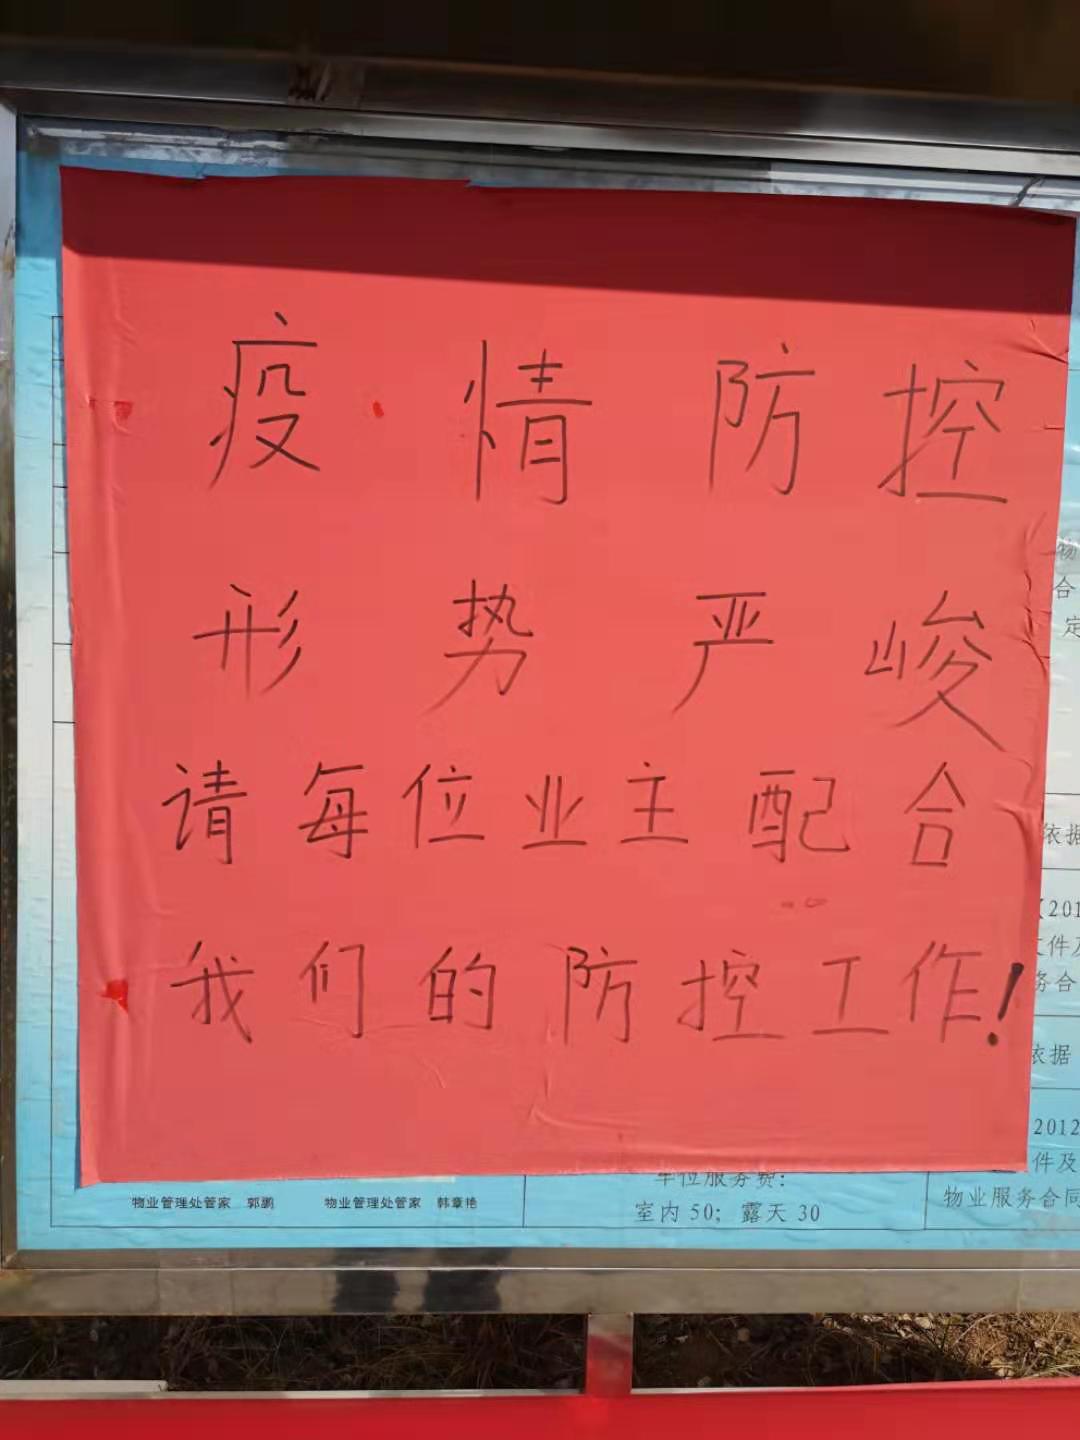 疫情防控
形势严峻
请每位业主配合
我们的防控工作!
物
合
定
依据
(201
文件及
务合
依据
2012
件及
物业服务合同
车位服务费:
室内 50; 露天 30
物业管理处管家 郭鹏 物业管理处管家 韩章艳